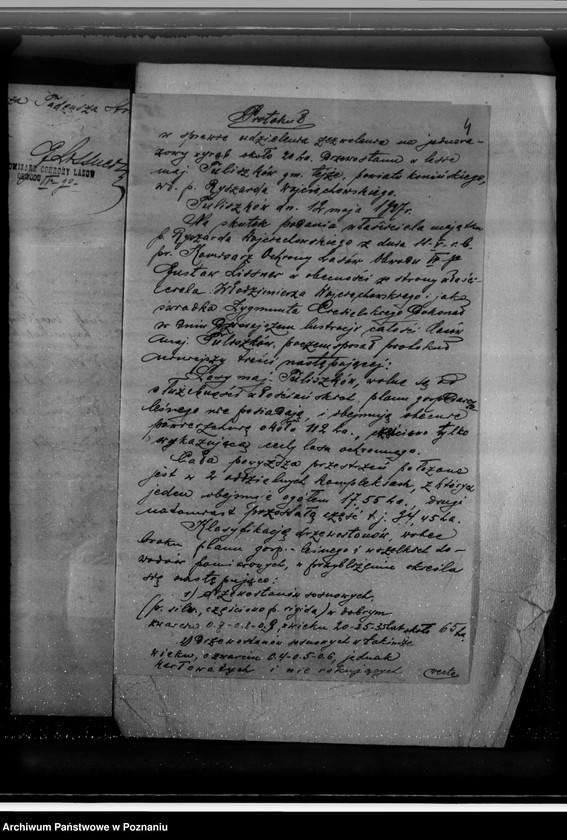 za Tadeusza
KOMISARZ OCHRONY LASÓW
OBWODU
4
Protokuł
w sprawie udzielenia zezwolenia na jednora-
zowy wyrąb około 20 ha. drzewostanu w lesie
maj. Tuliszków gm. tejże, powiatu konińskiego,
wł. p. Ryszarda Wojciechowskiego.
Tuliszków dn. 12 maja 1927 r.
Na skutek podania właściciela majątku
p. Ryszarda Wojciechowskiego z dnia 11.V. r.b.
Komisarz Ochrony Lasów Obwodu
Gustaw Lissner w obecności ze strony właści-
ciela Włodzimierza Wojciechowskiego i jako
świadka Zygmunta dokonał
w dniu dzisiejszym lustracji całości lasów
maj. Tuliszków, poczem spisał protokuł
niniejszy treści następującej:
Lasy maj. Tuliszków, wolne są od
służebności włościańskich, planu gospodarcz.
leśnego nie posiadają, i obejmują obecnie
powierzchnię około 112 ha., tylko
wykazującą cechy lasu ochronnego.
Cała powyższa przestrzeń położona
jest w 2 oddzielnych kompleksach, z których
jeden obejmuje ogółem 17.55 ha, drugi
natomiast pozostałą część t.j. 94,45 ha.
Klasyfikację drzewostanów, wobec
braku planu gosp.-leśnego i wszelkich do-
wodów pomiarowych, w przybliżeniu określa
się następująco:
1) drzewostanów sosnowych,
(p. silv., częściowo p. rigida) w dobrym
zwarciu 0.7-0.8-0.9, wieku 20-25-35 lat około 65 ha
2) Drzewostanów sosnowych w takimże
wieku, o zwarciu 0.4-0.5-0.6, jednak
karłowatych i nie rokujących verte
Archiwum Państwowe w Poznaniu